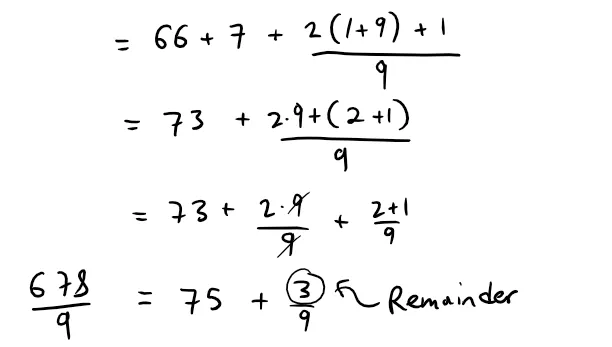 = 66 + 7 + 2(1+9) + 1 / 9
= 73 + 2·9+(2+1) / 9
= 73 + 2·9 / 9 + 2+1 / 9
678 / 9 = 75 + 3 / 9 Remainder